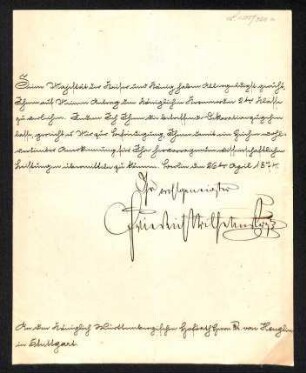 Seine Majestät der Kaiser und König haben Allergnädigst geruht,
Ihnen auf Meinen Antrag den Königlichen Kronenorden 3ter Klasse
zu verleihen. Indem Ich Ihnen die Dekoration zugehen
lasse, gereicht es Mir zur Befriedigung, Ihnen damit ein Zeichen wohl-
verdienter Anerkennung für Ihre hervorragenden wissenschaftlichen
Leistungen übermitteln zu können. Berlin den 26ten April 187
Ihr wohlgeneigter
Friedrich Wilhelm
An den Königlich Württembergischen Hofrath Herrn von Heuglin
in Stuttgart.